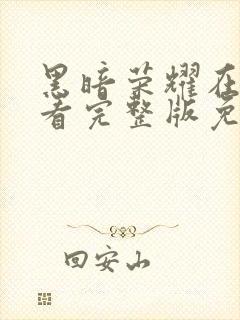 黑暗荣耀在
看完整版免
回安山